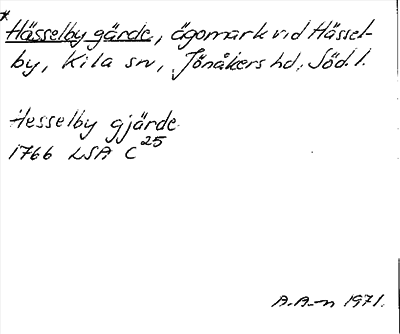 * Hässelby gärde, ägomark vid Hässel-
by, Kila sn, Jönåkers hd, Söd. l.
Hesselby gjärde
1766 LSA C 25
A.A-n 1971.